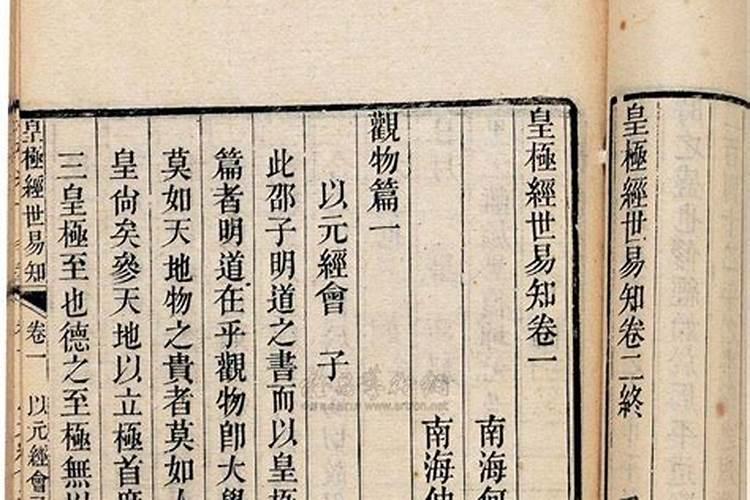 皇極經世易知卷二終
皇極經世易知卷一
南海何
南海
觀物篇一
以元經會 子
此邵子明道之書而以皇極
篇者明道在乎觀物卽大學
莫如天地物之貴者莫如人
皇尙矣參天地以立極首
三皇極至也德之至極無以
皇極經世易知 卷一 以元經會